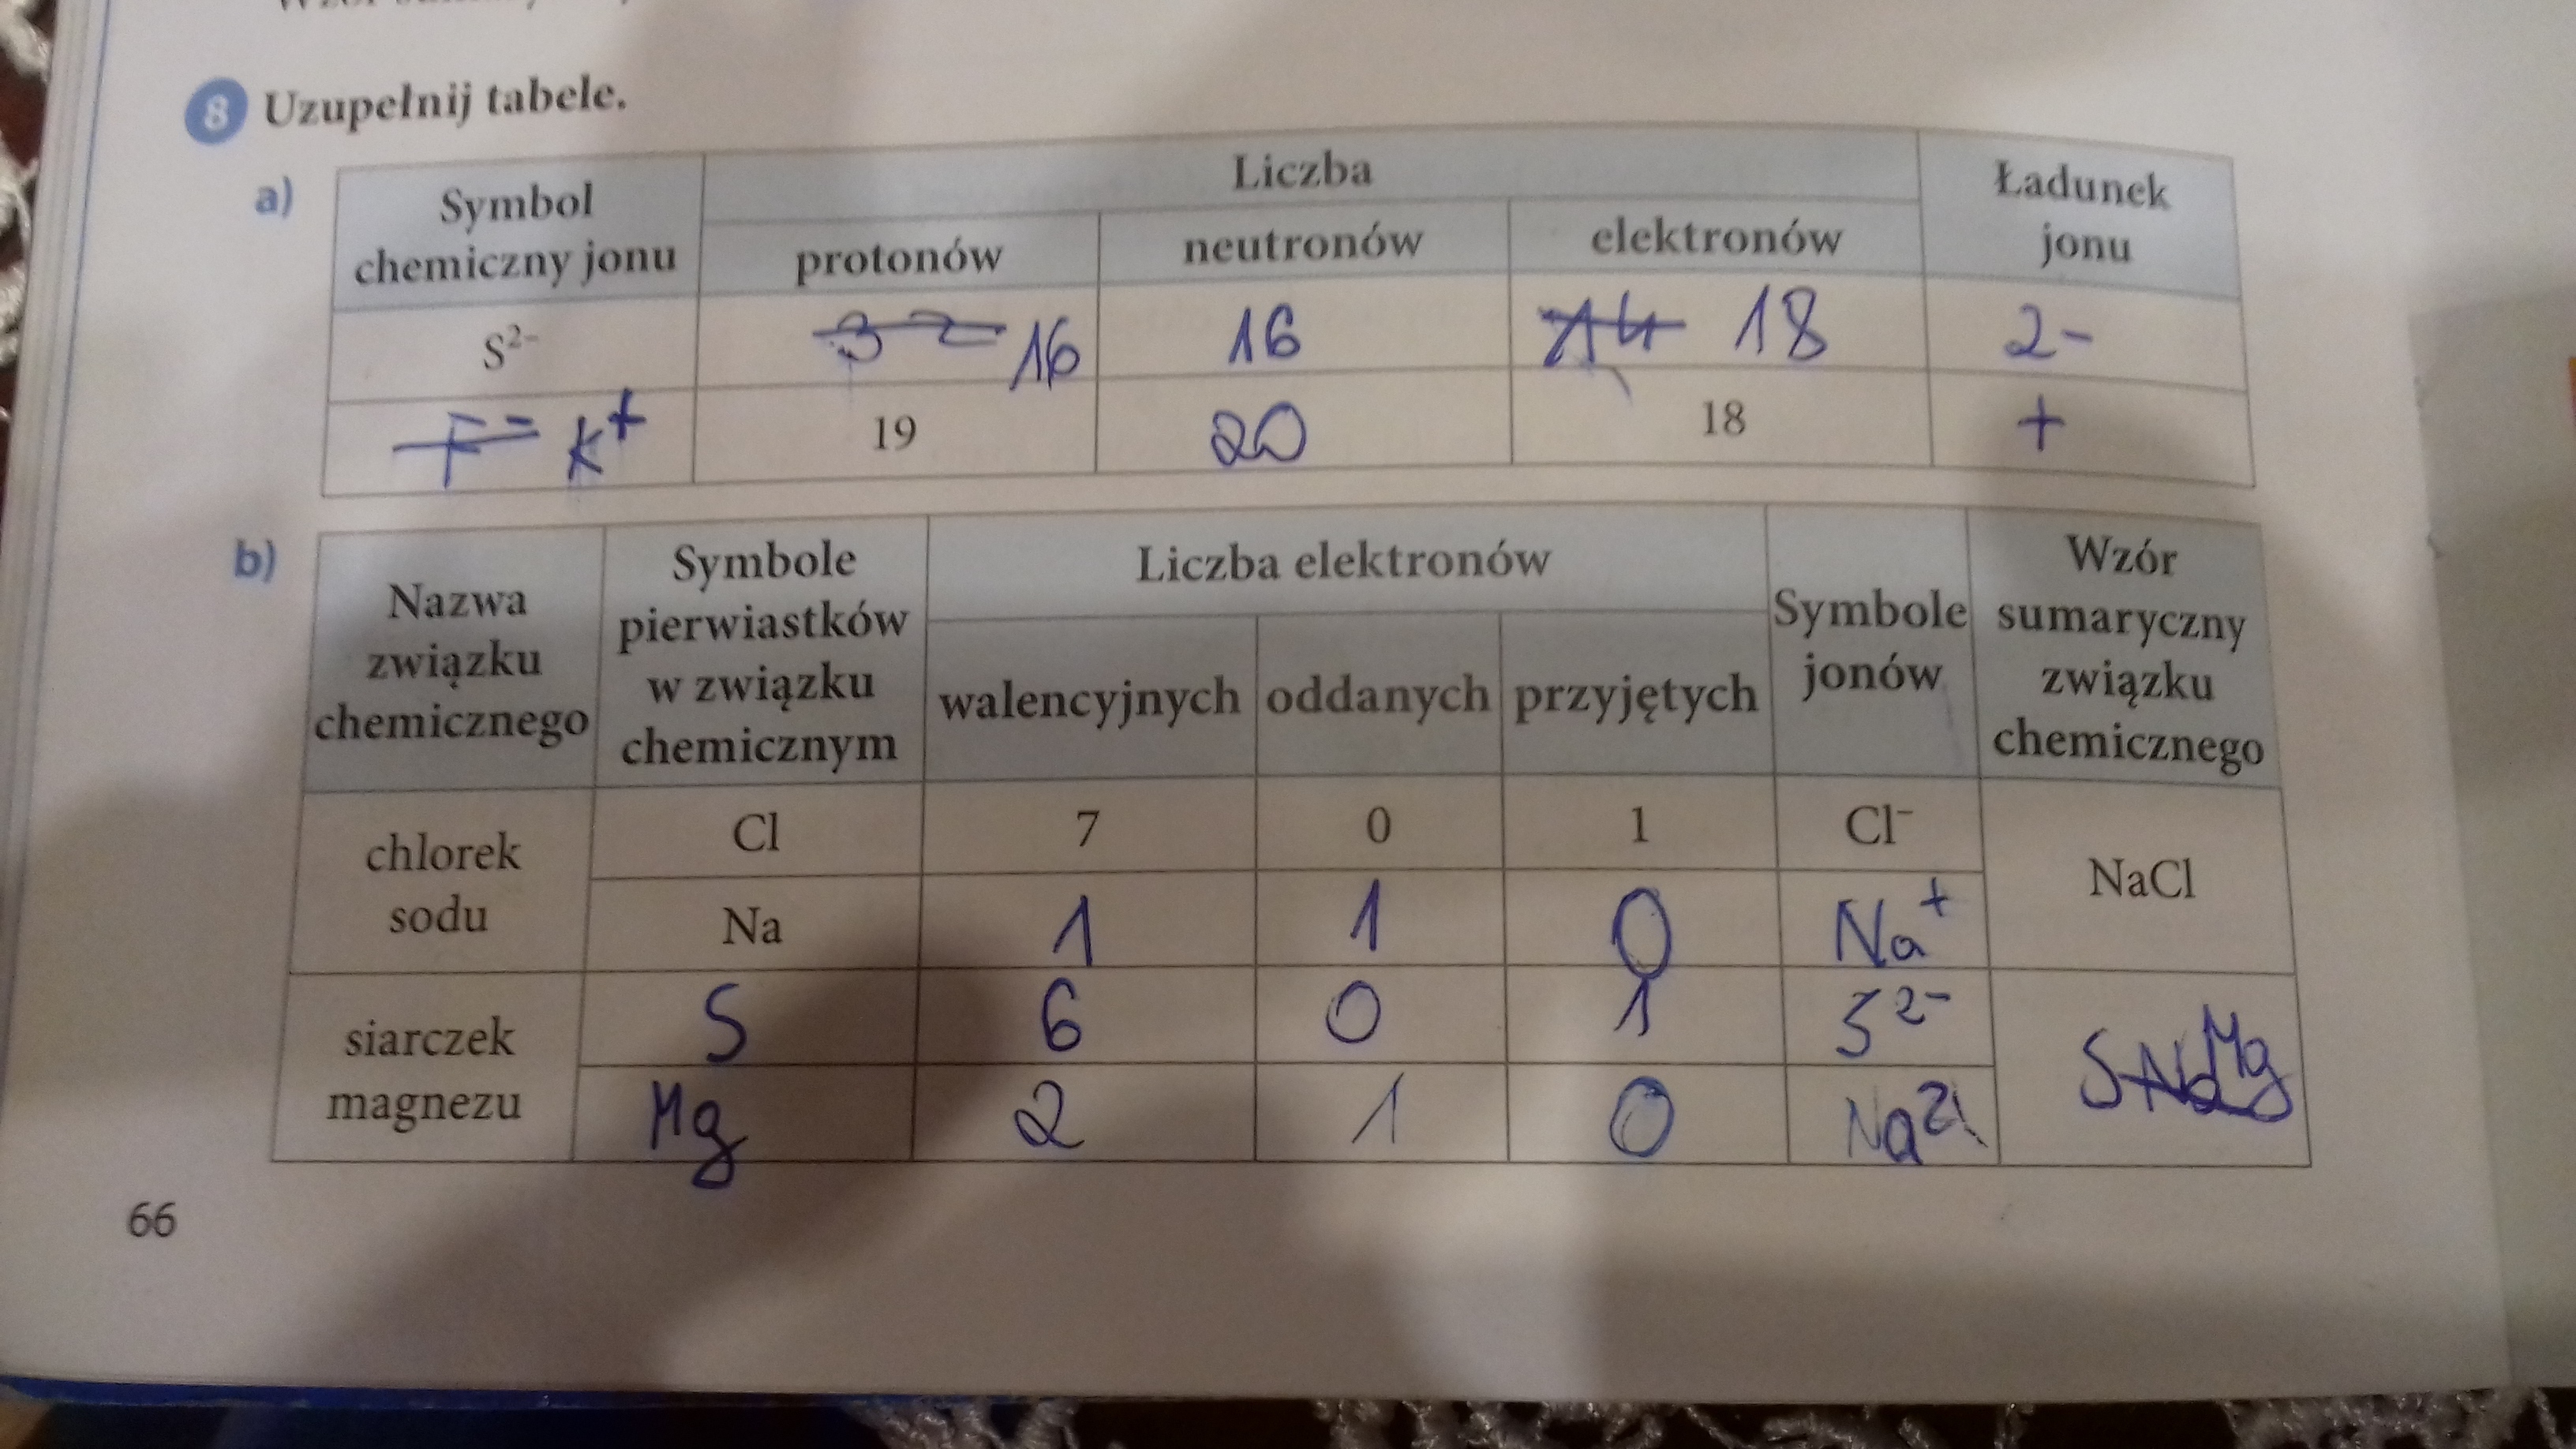 8 Uzupełnij tabele.
a)
Symbol chemiczny jonu
Liczba
Ładunek jonu
protonów neutronów elektronów
S²⁻ 16 16 18 2-
K⁺ 19 20 18 +
b)
Nazwa związku chemicznego
Symbole pierwiastków w związku chemicznym
Liczba elektronów
walencyjnych oddanych przyjętych
Symbole jonów
Wzór sumaryczny związku chemicznego
chlorek sodu
Cl 7 0 1 Cl⁻
Na 1 1 0 Na⁺
NaCl
siarczek magnezu
S 6 0 1 S²⁻
Mg 2 1 0
S Mg
66